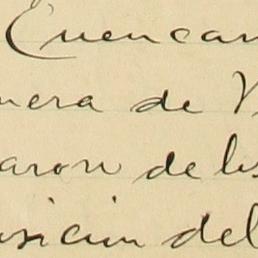 Cuencan
nera de
aron de los
sicion del